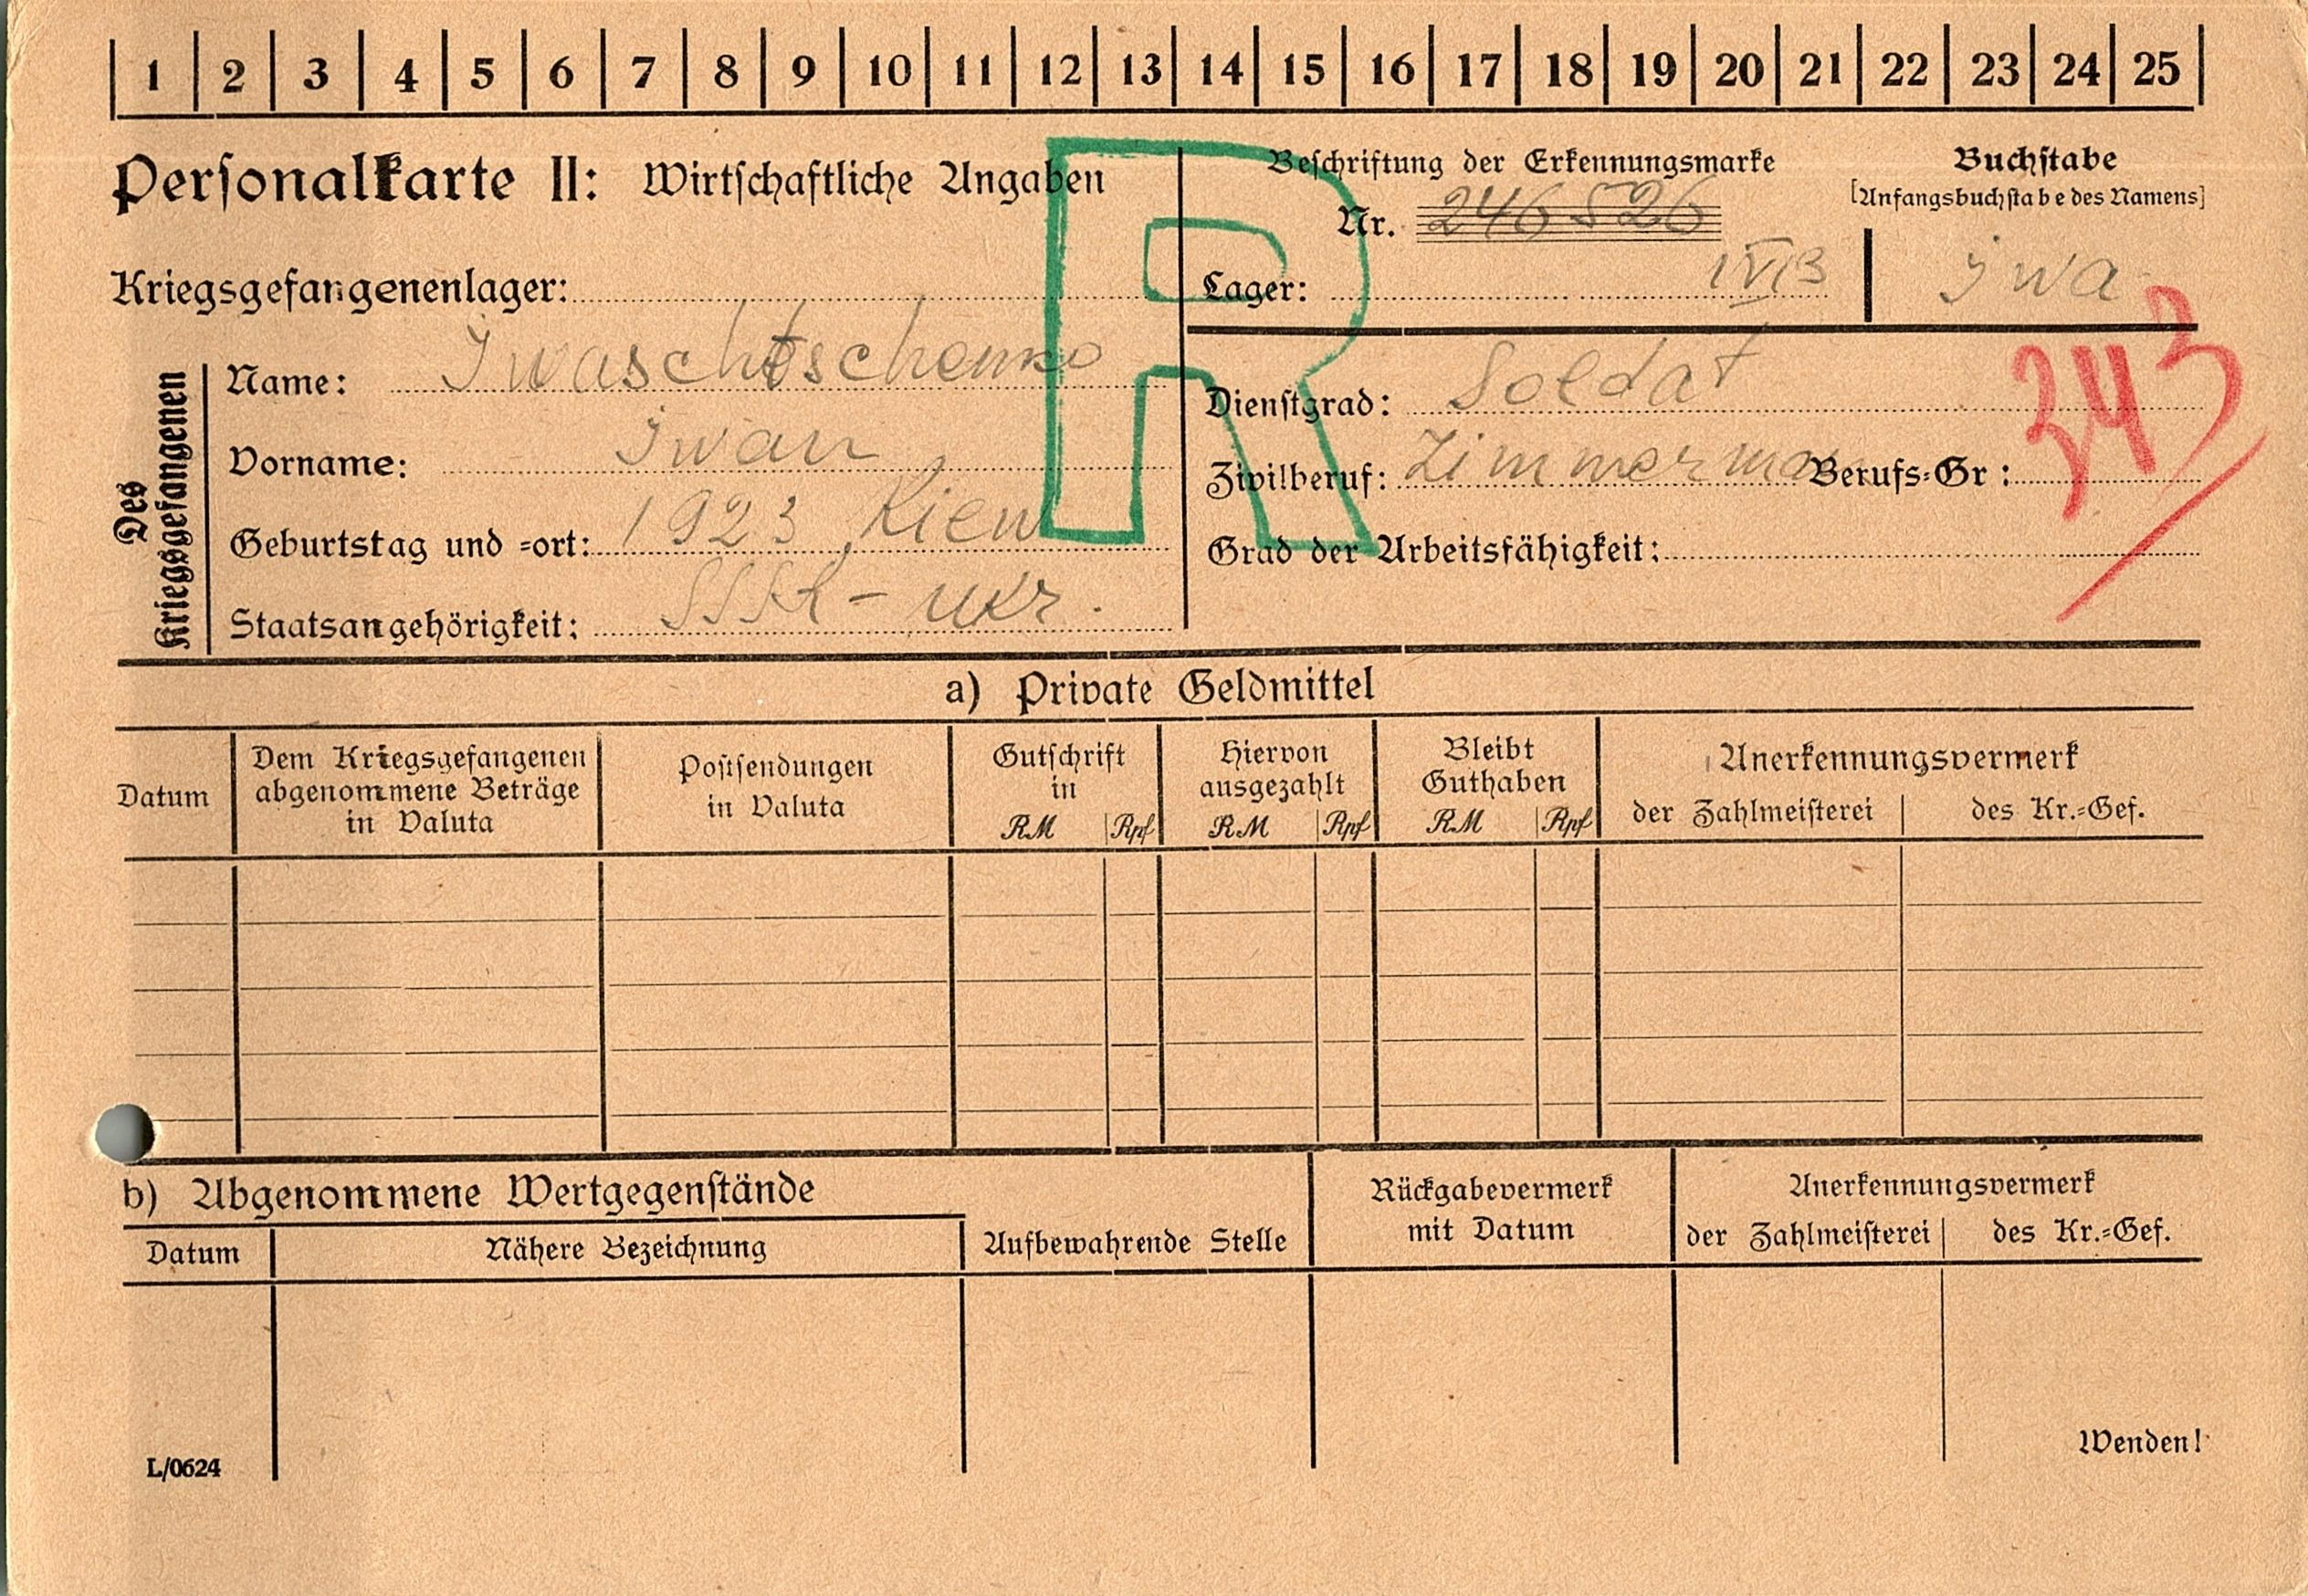 1 2 3 4 5 6 7 8 9 10 11 12 13 14 15 16 17 18 19 20 21 22 23 24 25
Personalkarte II: Wirtschaftliche Angaben
R
Beschriftung der Erkennungsmarke
Nr. 246526
Lager: IV B
Buchstabe
[Anfangsbuchstabe des Namens]
Iwa
Kriegsgefangenenlager:
Des Kriegsgefangenen
Name: Iwaschtschenko
Vorname: Iwan
Geburtstag und =ort: 1923, Kiew
Staatsangehörigkeit: SSSR - ukr.
Dienstgrad: Soldat
Zivilberuf: Zimmerman Berufs=Gr:
343
Grad der Arbeitsfähigkeit:
a) Private Geldmittel
Datum
Dem Kriegsgefangenen
abgenommene Beträge
in Valuta
Postsendungen
in Valuta
Gutschrift
in
RM Rpf
Hiervon
ausgezahlt
RM Rpf
Bleibt
Guthaben
RM Rpf
Anerkennungsvermerk
der Zahlmeisterei des Kr.=Gef.
b) Abgenommene Wertgegenstände
Datum Nähere Bezeichnung
Aufbewahrende Stelle
Rückgabevermerk
mit Datum
Anerkennungsvermerk
der Zahlmeisterei des Kr.=Gef.
Wenden!
L/0624